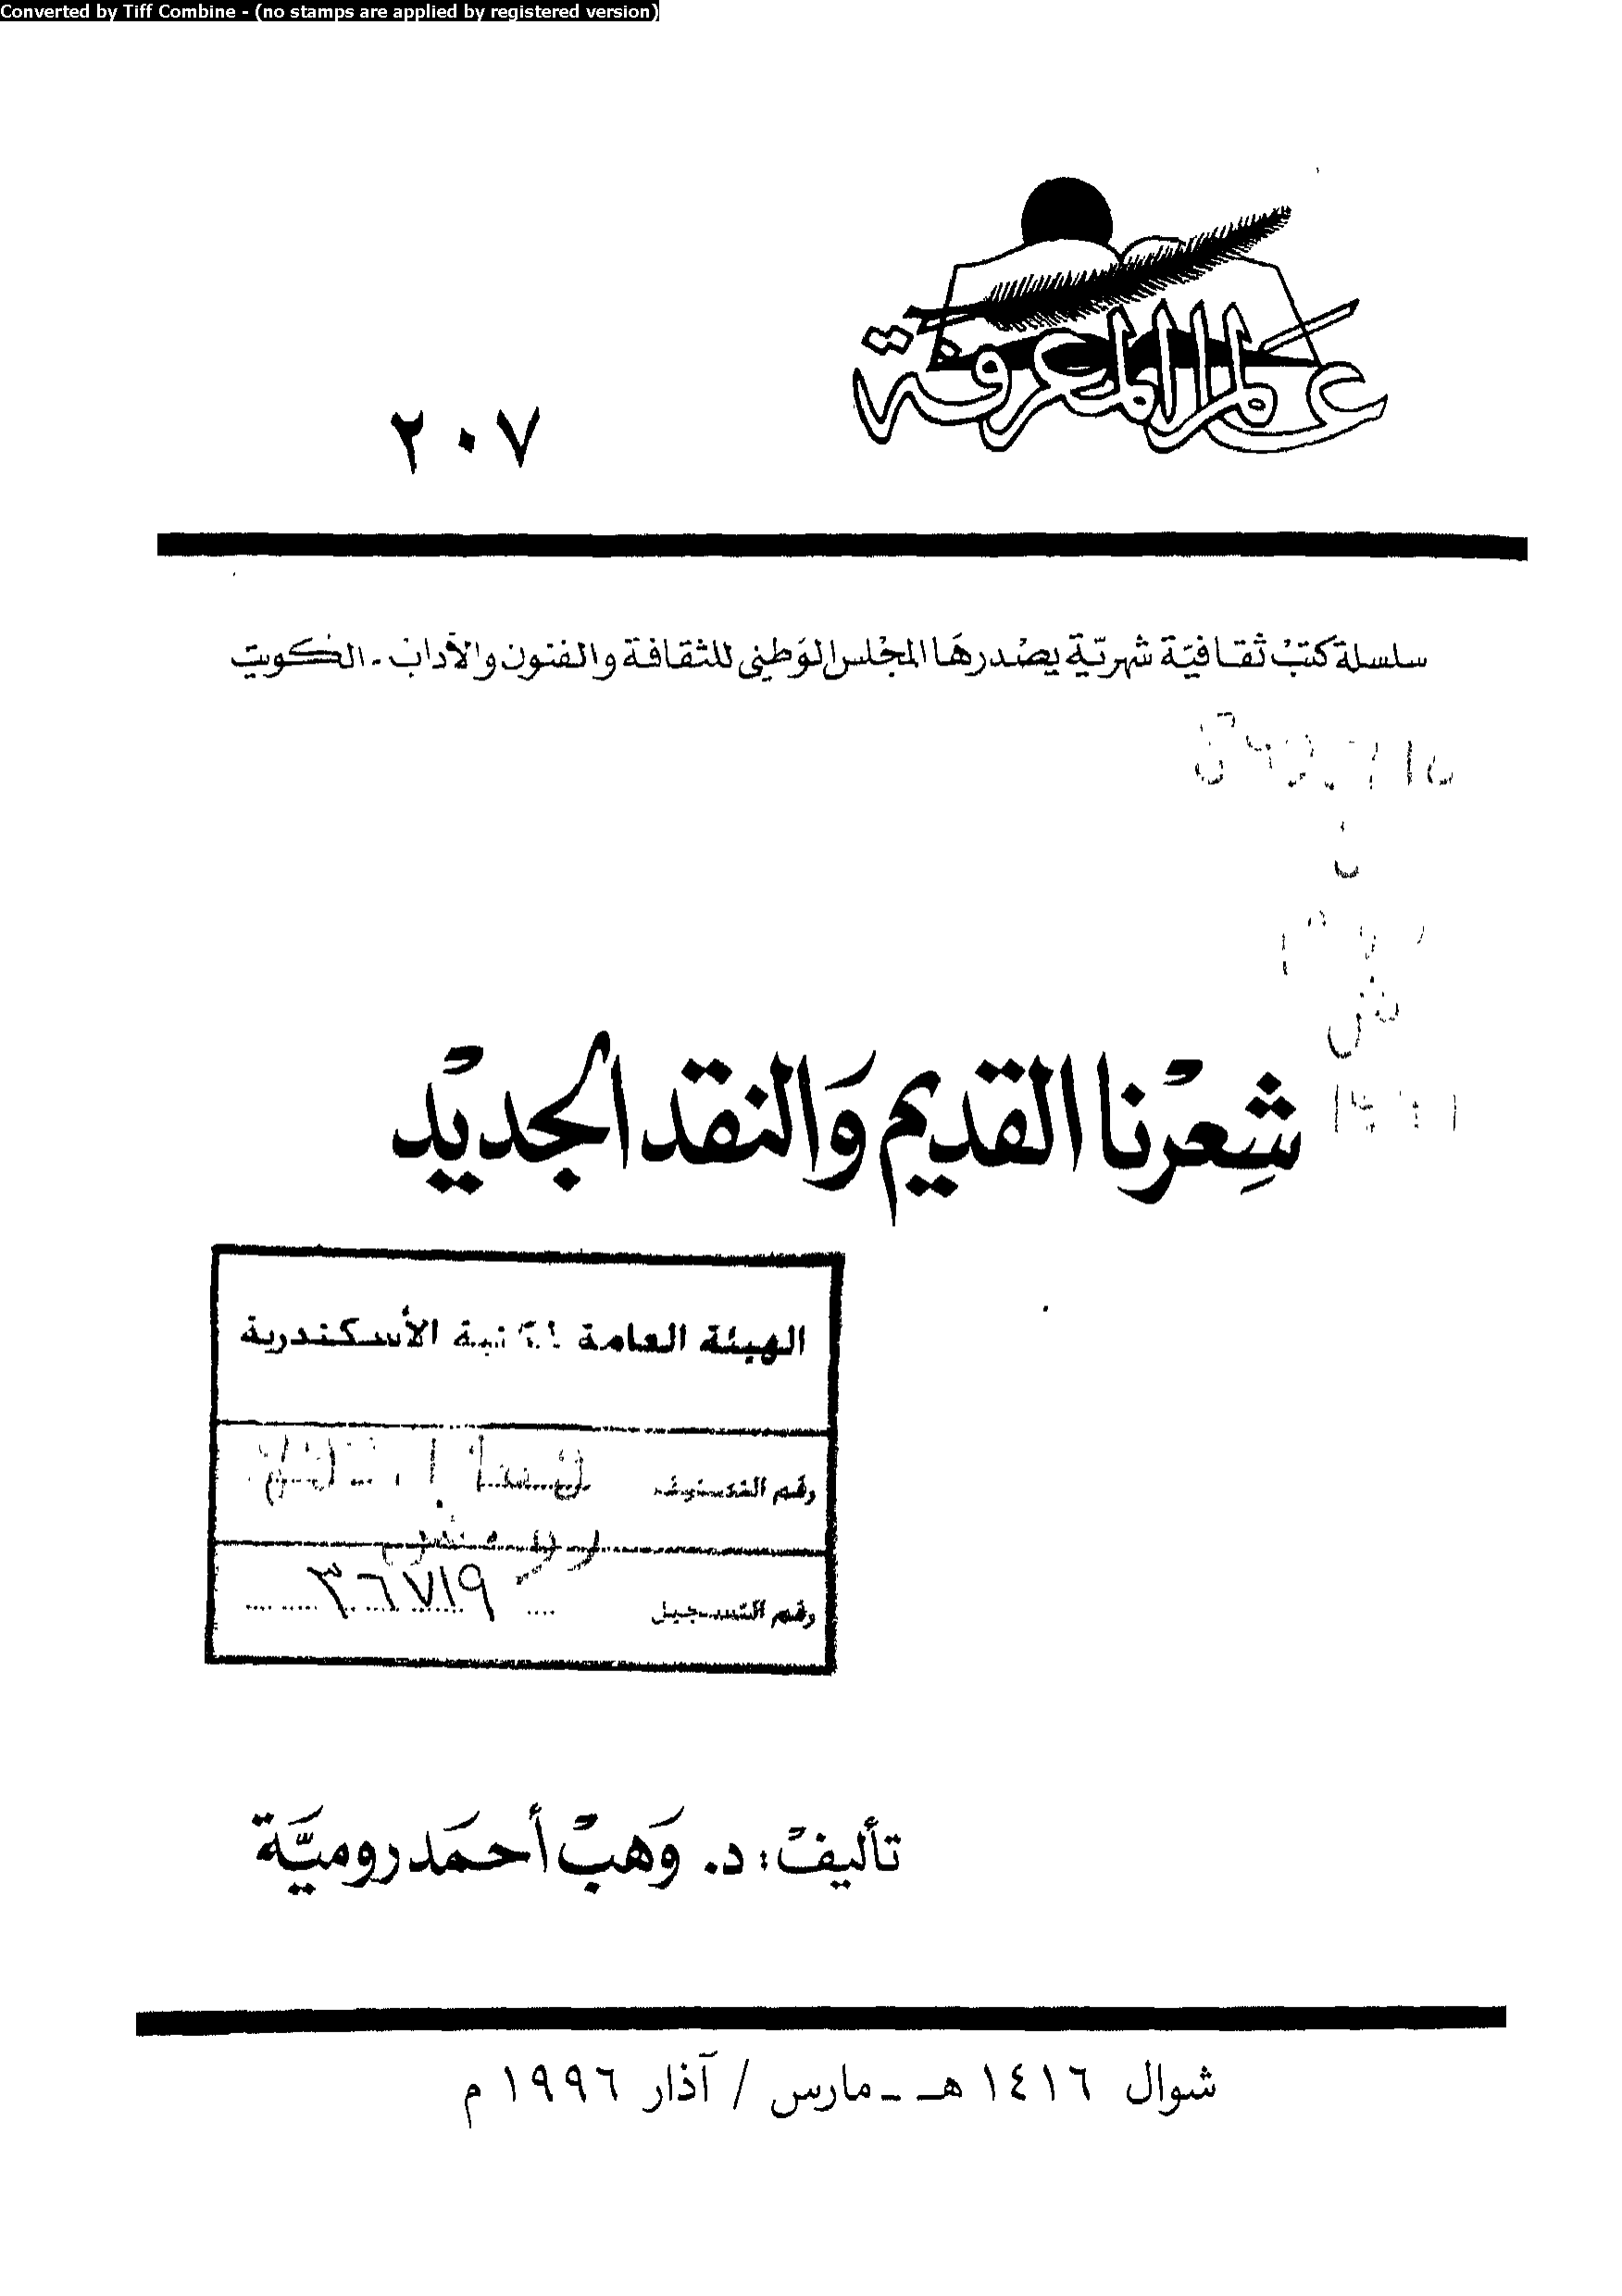 Converted by Tiff Combine - (no stamps are applied by registered version)
عالم المعرفة
٢٠٧
سلسلة كتبْ ثقافيّة شهريّة يصْدرهَا المجْلس الوَطني للثقافة والفنون والآداب - الكويت
شِعرْنا القديم وَالنقد الجديدْ
الهيئة العامة الأسكندرية
رقم التصنيف
رقم التسجيل ٣٦٧١٩
تأليفْ: د. وَهبْ أحمَد روميَّة
شوال ١٤١٦ هـ - مارس / آذار ١٩٩٦ م